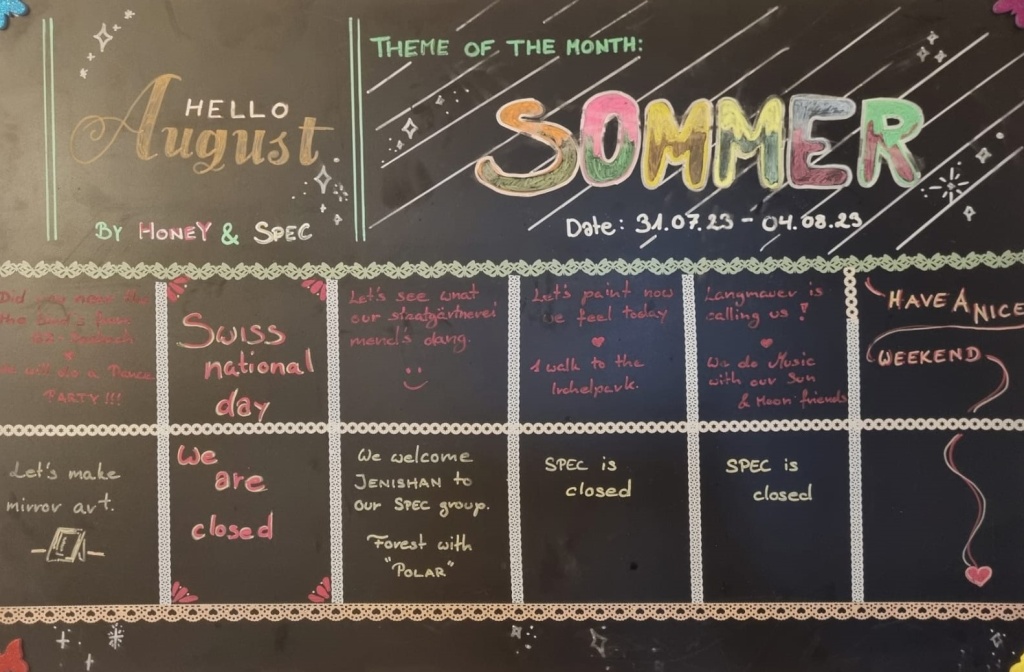 THEME OF THE MONTH:
HELLO
August
SOMMER
BY HONEY & SPEC
Date: 31.07.23 - 04.08.23
Did you need
PARTY!!!
Swiss
national
day
Let's see what
our
dang.
Let's paint how
we feel today
A walk to the
Irchelpark.
Langmauer is
calling us!
We do Music
with our Sun
& Moon friends
HAVE A NICE
WEEKEND
Let's make
mirror art.
We
are
closed
We welcome
JENISHAN to
our SPEC group.
Forest with
"POLAR"
SPEC is
closed
SPEC is
closed